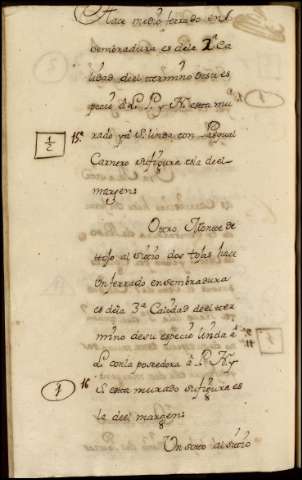 Hace medio ferrado en
sembradura es de la 1ª Ca
lidad del termino desu es
pecie L. P. y N. esta mu
15 rado y S. linda con Pasqual
1/2
Carnero su figura es la del
margen
Otro, Monte de
tojo al sitio dos tojas hace
un ferrado en sembradura
es de la 3ª Calidad del ter
mino de su especie linda a
L. con la poseedora a P. N. y
16 S. esta murado su figura es
1
la del margen
Un soto al sitio